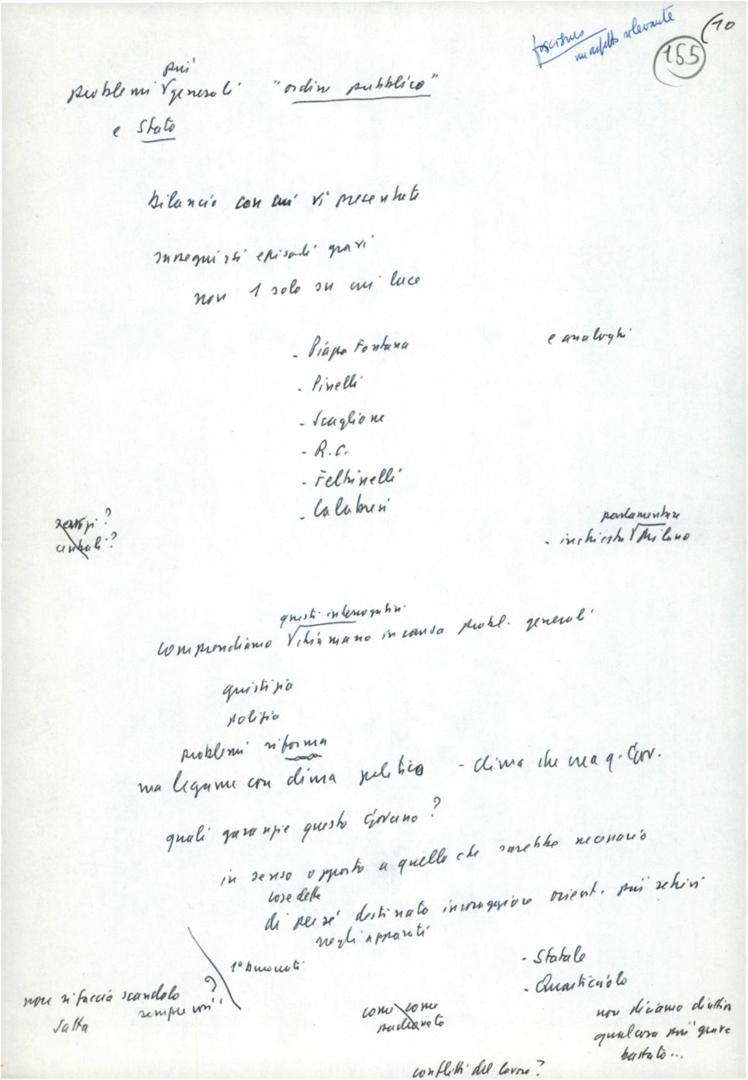 fascismo
(10
155
più
problemi √ generali "ordine pubblico"
e Stato
bilancio con cui vi presentate
susseguirsi episodi gravi
non 1 solo su cui luce
- Piazza Fontana
e analoghi
- Pinelli
- Scaglione
- R.C.
- Feltrinelli
- Calabresi
parlamentare
- inchiesta √ Milano
questi interrogativi
comprendiamo √ chiamano in causa probl. generali
giustizia
polizia
problemi riforma
ma legame con clima politico - clima che crea q. Gov.
quali garanzie questo Governo?
in senso opposto a quello che sarebbe necessario
cose dette
di per sé destinato incoraggiare orient. più retrivi
negli apparati
- Statale
- Quarticciolo
1° Buonocore
non si faccia scandalo
sempre voi"
?
come come
non diciamo d'altra
qualcosa più grave
conflitti del lavoro?